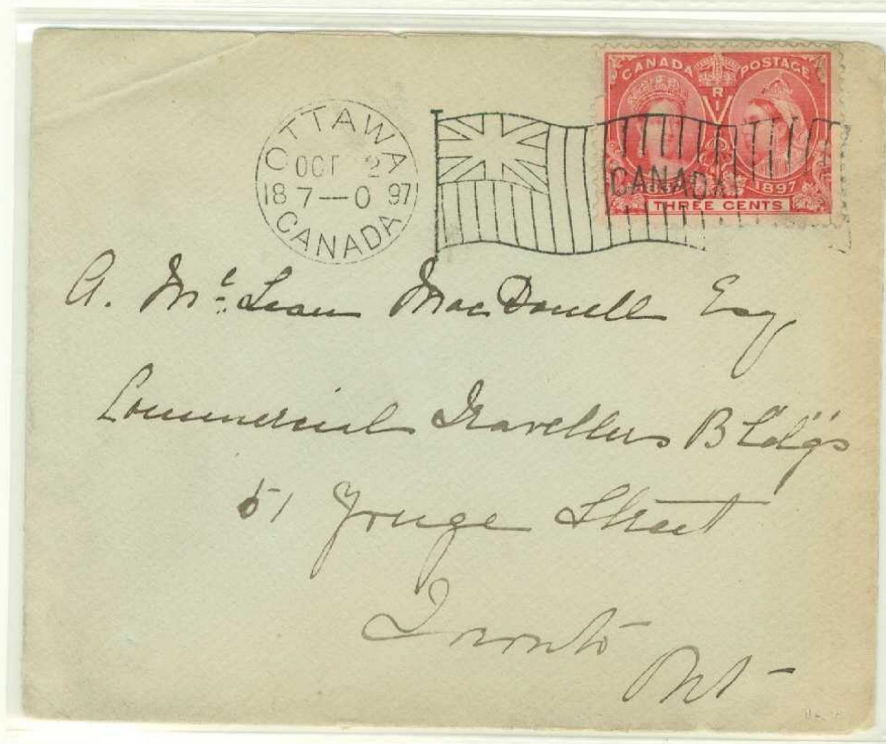 OTTAWA
OCT 2
18 7—0 97
CANADA
CANADA POSTAGE
V R I
CANADA
1897
THREE CENTS
A. Mc Lean MacDonell Esq
Commercial Travellers Bldgs
51 Yonge Street
Toronto
Ont